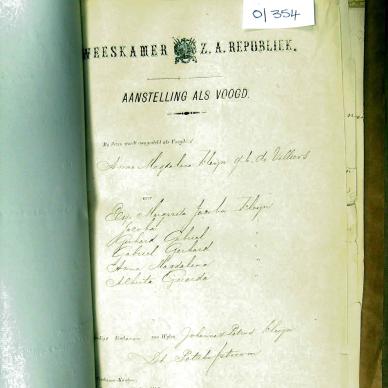 0/354
WEESKAMER Z. A. REPUBLIEK.
AANSTELLING ALS VOOGD.
Bij deze wordt aangesteld als Voogdes
Anna Magdalena Kleyn geb. de Villiers
over
Elsje Margareta Jacoba Kleyn
Jacoba "
Gerhard Gabriel "
Gabriel Gerhard "
Anna Magdalena "
Alberta Gerarda "
Kinderen van Wijlen Johannes Petrus Kleyn
Potchefstroom